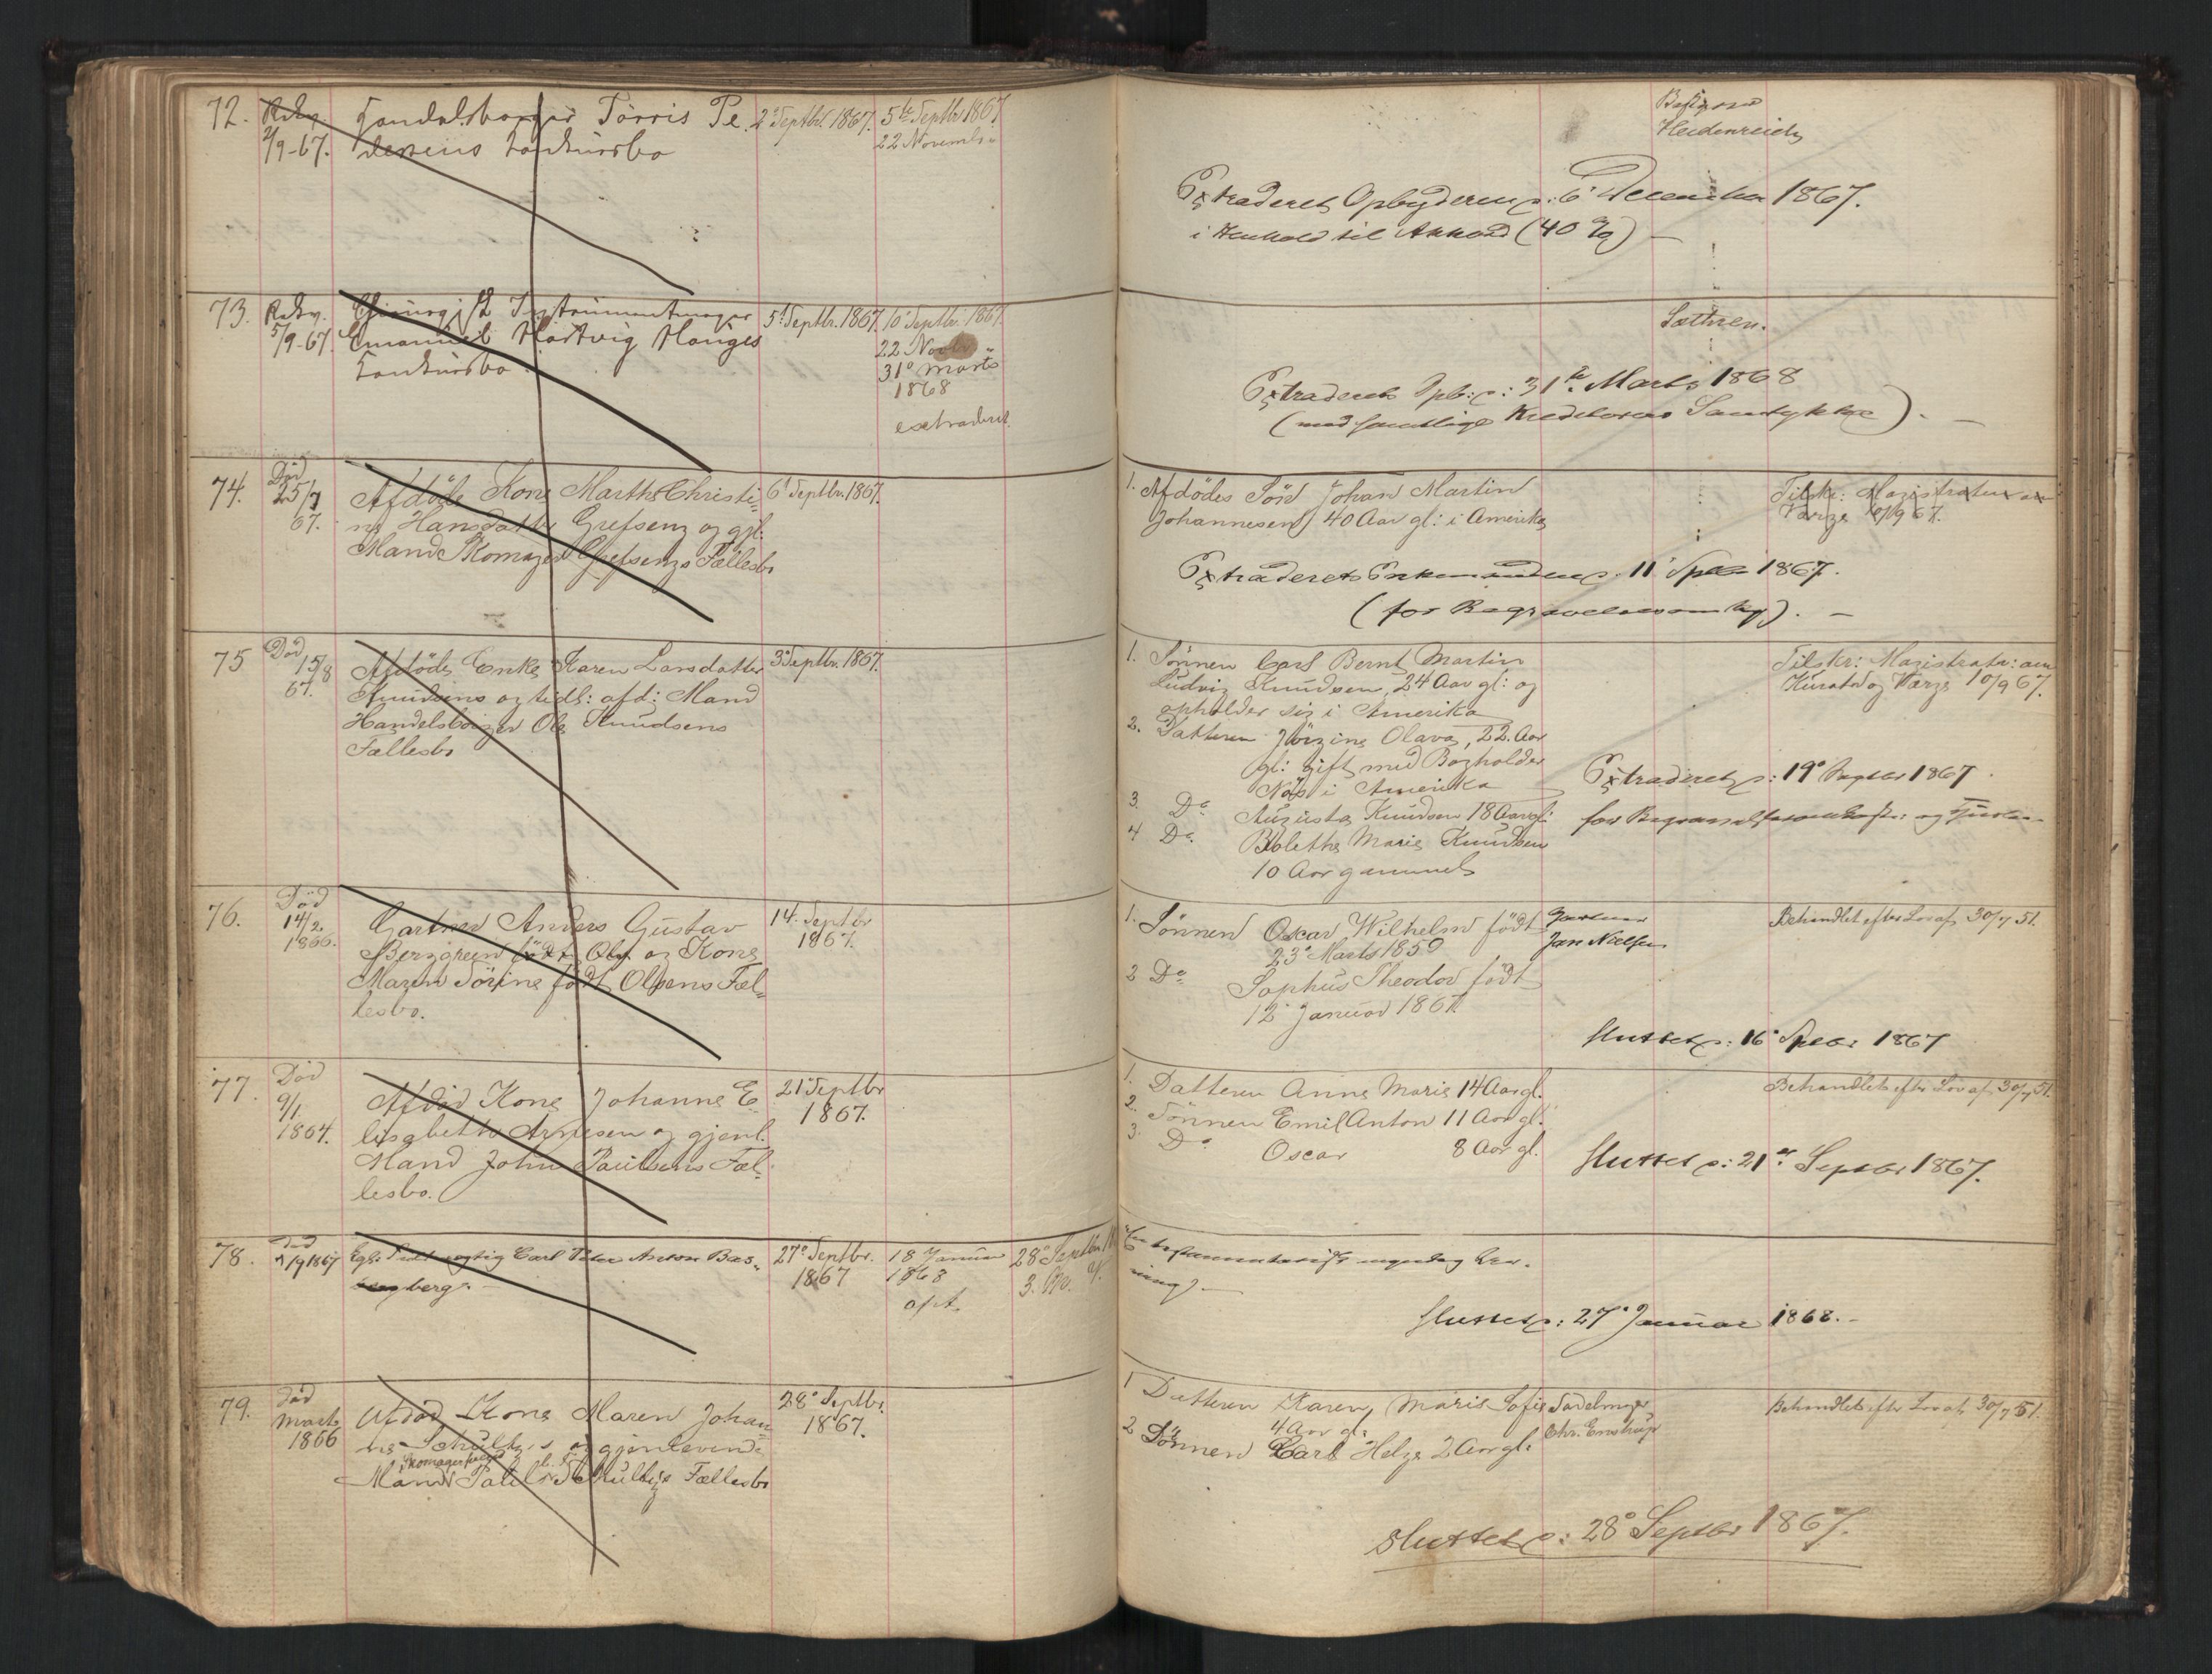 72.
2/9-67.
Handelsborger Törris Pe
dersens konkursbo
2. Septbr. 1867.
5te Septbr 1867
22 Novembr
Heidenreich
Extraderet Opbyderen p: 6 December 1867.
i Henhold til Akkord (40 %)
73.
Rekv.
5/9-67.
Chirurgisk Instrumentmager
Emanuel Hartvig Hauges
konkursbo
5. Septbr. 1867.
10 Septbr. 1867
22 Novbr "
31 marts
1868
extraderet
Sæthren.
Extraderet Opb: p: 31te Marts 1868
(med samtlige Kreditorers Samtykke).
74.
Död
25/7
67.
Afdöde Kone Marthe Christi-
ne Hansdatter Grefsens og gjl:
Mand Skomager Grefsengs Fællesbo
6 Septbr. 1867.
1. Afdödes Sön Johan Martin
Johannesen, 40 Aar gl: i Amerika
Tilskr: Magistraten om
Værge 6/9 67.
Extraderet Enkemanden p. 11 Sptbr 1867.
(for Begravelsesomk).
75
Död
15/8
67.
Afdöde Enke Karen Larsdatter
Knudsens og tidl: afd: Mand
Handelsborger Ole Knudsens
Fællesbo
3 Septbr. 1867.
1. Sönnen Carl Bernt Martin
Ludvig Knudsen, 24 Aar gl: og
opholder sig i Amerika
2. Datteren Jörgine Olava, 22. Aar
gl: gift med Bogholder
Næs i Amerika
3. Do Augusta Knudsen 18 Aar gl:
4 Do Bolethe Marie Knudsen
10 Aar gammel
Tilskr: Magistratn: om
Kurator og Værge 10/9 67.
Extraderet p: 19 Septbr 1867
76.
Död
14/2.
1866.
Gartner Anders Gustav
Berggreen og Kone
Maren Törine födt Olsens Fæl-
lesbo.
14. Septbr
1867.
1. Sönnen Oscar Wilhelm födt
23 Marts 1859
2 Do Sophus Theodor födt
12 Januar 1861
Gartner
Jan Nielsen
Behandlet efter Lov af 30/7 51.
Sluttet p: 16 Sptbr 1867
77.
Död
9/1
1864.
Afdöd Kone Johanne E-
lisabeth Arnesen og gjenl.
Mand John Paulsens Fæl-
lesbo.
21 Septbr
1867.
1. Datteren Anne Marie 14 Aar gl.
2. Sönnen Emil Anton 11 Aar gl.
3. Do Oscar 8 Aar gl.
Behandlet efter Lov af 30/7 51.
Sluttet p: 21 Septbr 1867.
78.
Död
1867
Carl Peter Anton Bas-
berg.
27 Septbr.
1867
18 Januar
1868
opt.
28 Septbr
Sluttet p: 27 Januar 1868.
79.
Död
Marts
1866
Afdöd Kone Maren Johan
ne Schultzes og gjenlevende
Skomagersvend
Mand Schultzes Fællesbo
28 Septbr.
1867.
1 Datteren Karen Marie Sofie
4 Aar gl:
2 Sönnen Carl Helge 2 Aar gl:
Sadelmager
Chr. Enstrup
Behandlet efter Lov af 30/7 51.
Sluttet p: 28 Septbr 1867.